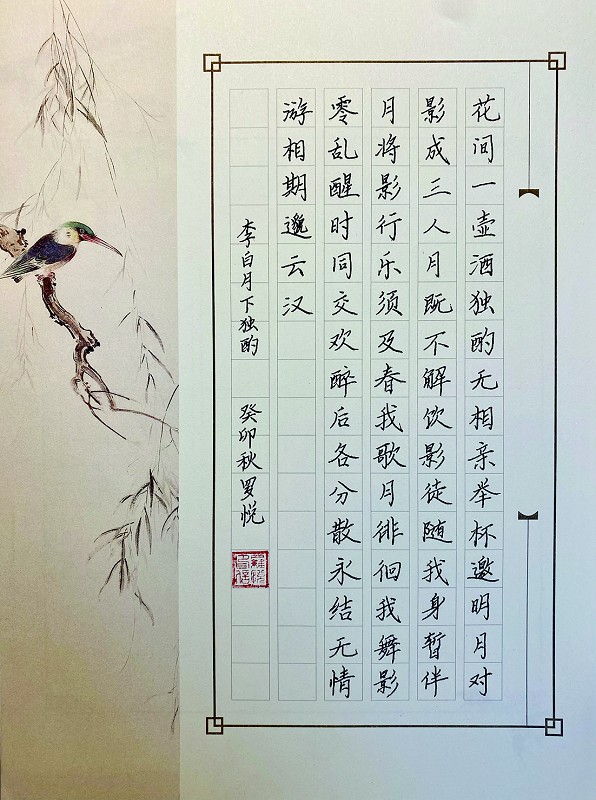 花间一壶酒独酌无相亲举杯邀明月对
影成三人月既不解饮影徒随我身暂伴
月将影行乐须及春我歌月徘徊我舞影
零乱醒时同交欢醉后各分散永结无情
游相期邈云汉
李白月下独酌 癸卯秋罗悦